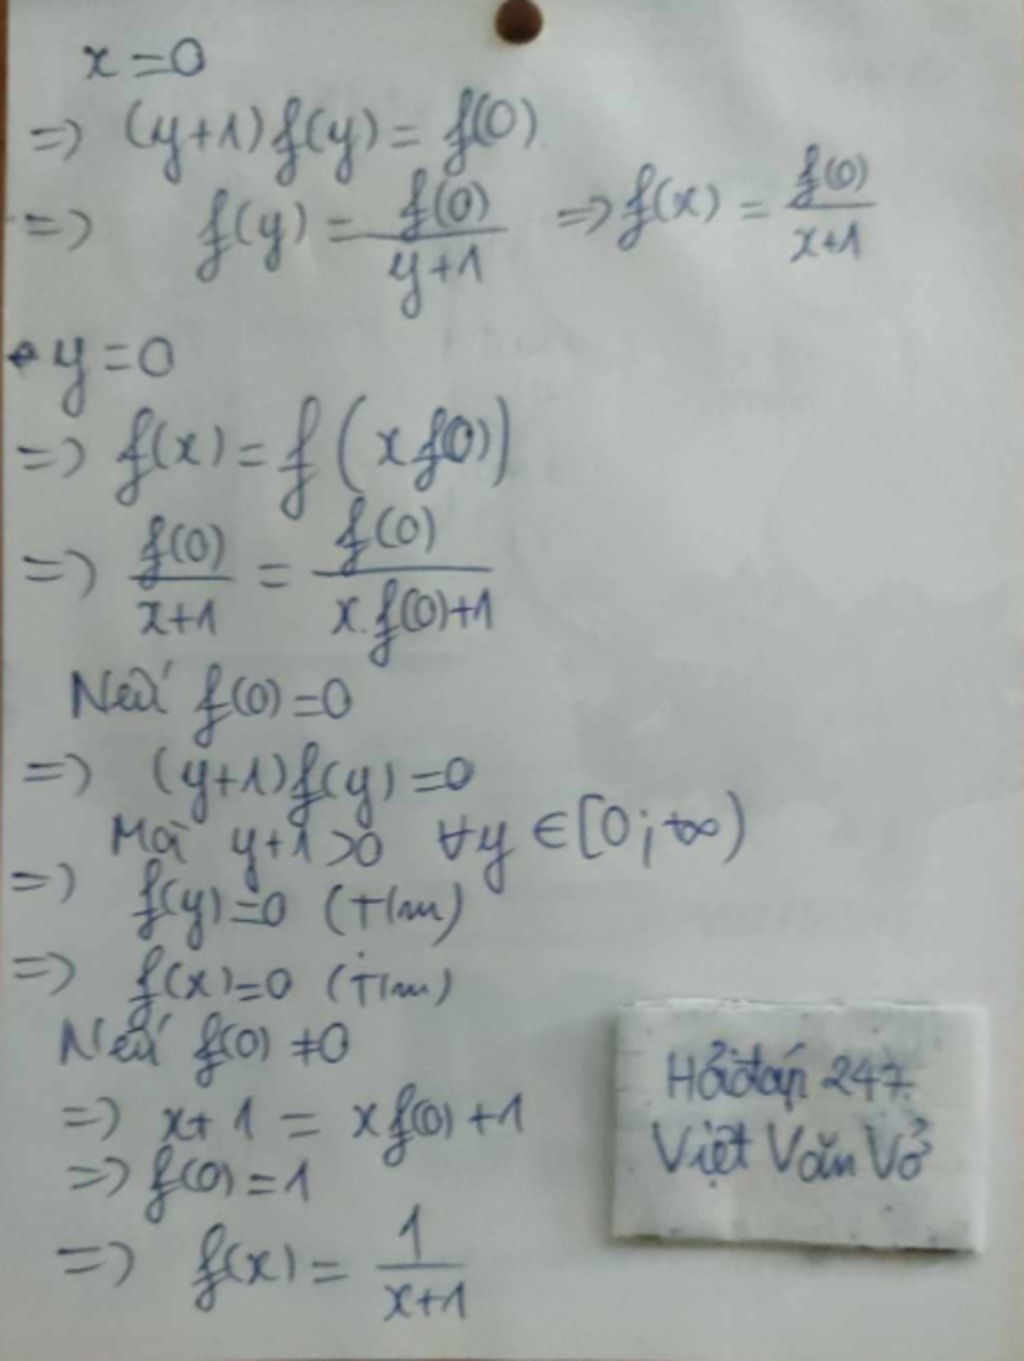 x = 0
=> (y+1) f(y) = f(0).
=> f(y) = f(0)/(y+1) => f(x) = f(0)/(x+1)
• y = 0
=> f(x) = f(x f(0))
=> f(0)/(x+1) = f(0)/(x.f(0)+1)
Nếu f(0) = 0
=> (y+1) f(y) = 0
Mà y+1 > 0 ∀y ∈ [0; +∞)
=> f(y) = 0 (t/m)
=> f(x) = 0 (t/m)
Nếu f(0) ≠ 0
=> x + 1 = x f(0) + 1
=> f(0) = 1
=> f(x) = 1/(x+1)
Hỏiđáp 247.
Việt Văn Vở